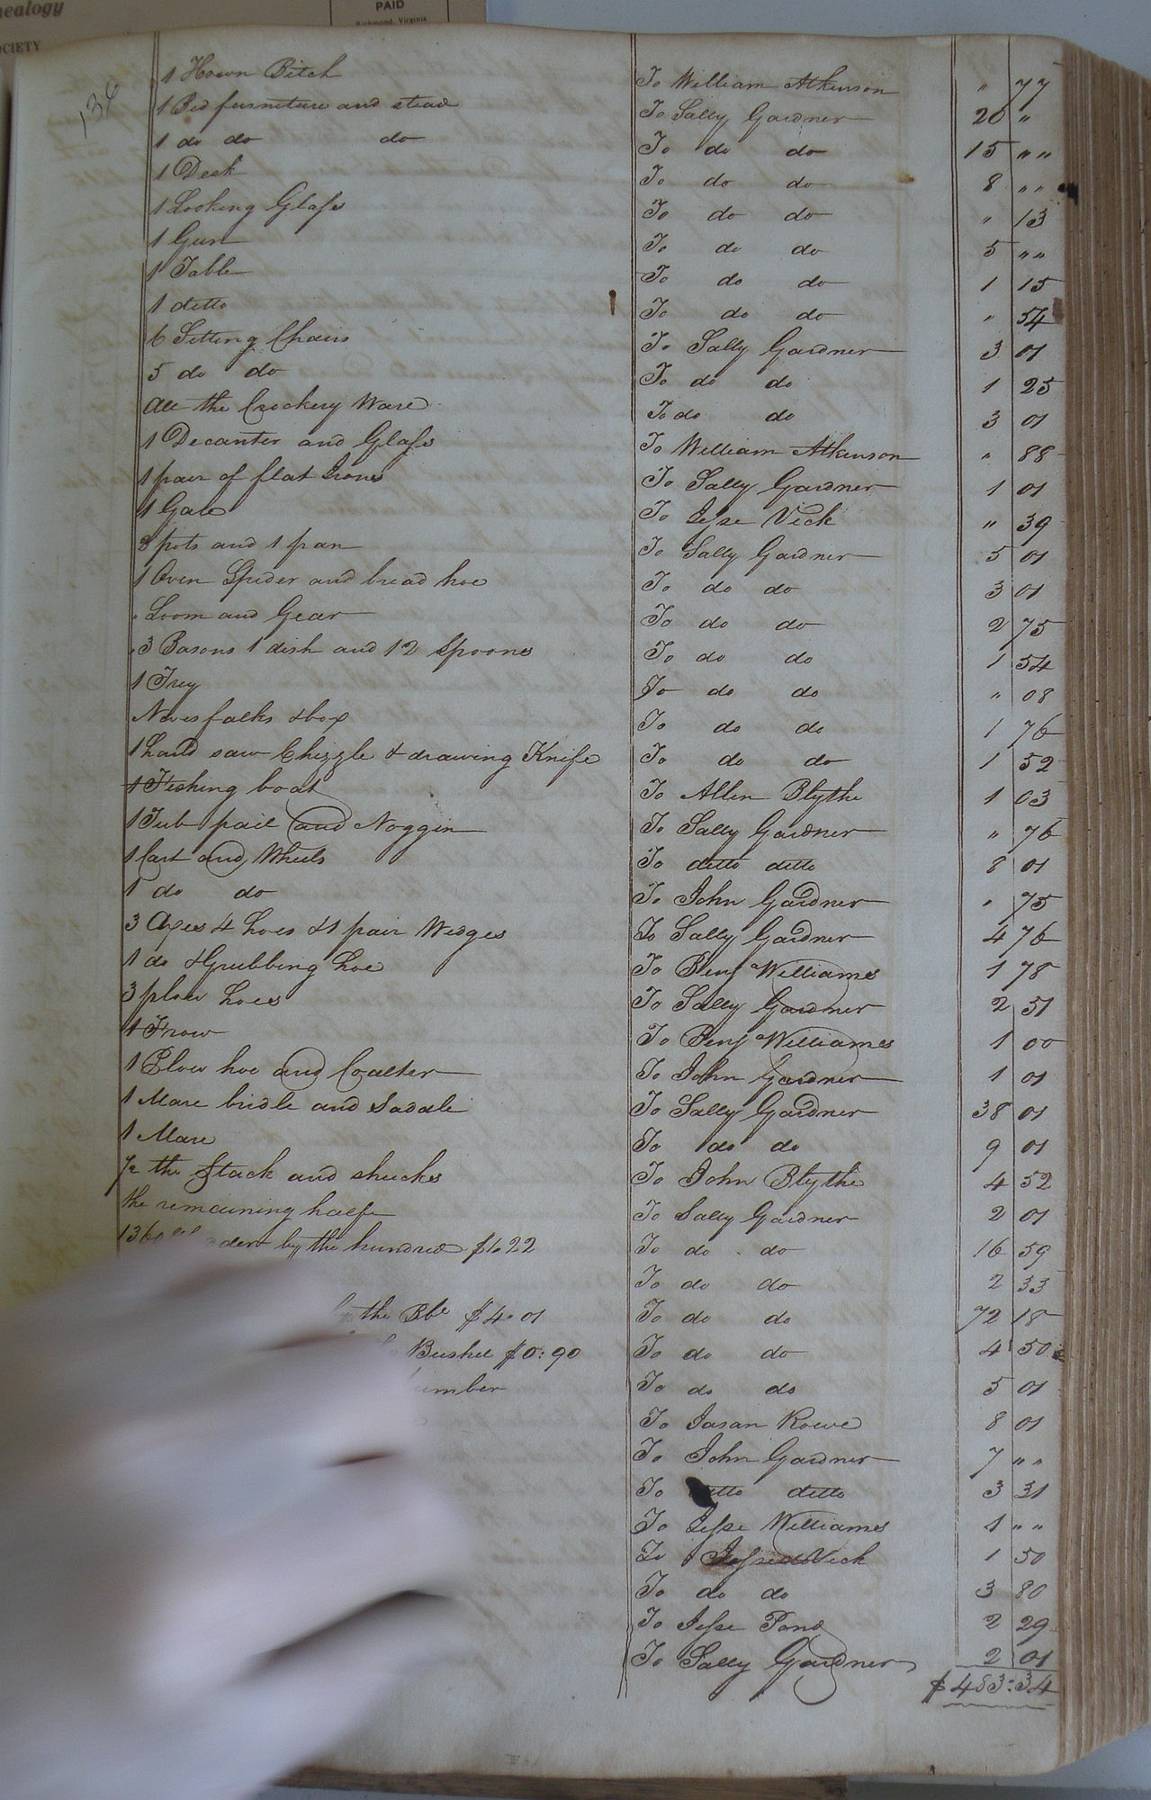 nealogy
OCIETY
PAID
Richmond, Virginia
134
1 Hown Bitch To William Atkinson " 77
1 Bed furneture and stead To Sally Gardner 20 "
1 do do do To do do 15 " "
1 Desk To do do 8 " "
1 Looking Glass To do do " 13
1 Gun To do do 5 " "
1 Table To do do 1 15
1 ditto To do do " 54
6 Setting Chairs To Sally Gardner 3 01
5 do do To do do 1 25
All the Crockery Ware To do do 3 01
1 Decanter and Glass To William Atkinson " 88
1 pair of flat Irons To Sally Gardner 1 01
1 To Jesse Vick " 39
3 pots and 1 pan To Sally Gardner 5 01
1 Oven Spider and bread hoe To do do 3 01
Loom and Gear To do do 2 75
3 Basons 1 dish and 12 Spoons To do do 1 54
1 Trey To do do " 08
& box To do do 1 76
1 hand saw Chizzle & drawing Knife To do do 1 52
1 Fishing boat To Allen Blythe 1 03
1 Tub pail and Noggin To Sally Gardner " 76
1 Cart and Wheels To ditto ditto 8 01
1 do do To John Gardner " 75
3 Axes 4 hoes & 1 pair Wedges To Sally Gardner 4 76
1 do & Grubbing hoe To Benj Williams 1 78
3 plow hoes To Sally Gardner 2 51
1 Frow To Benj Williams 1 00
1 Plow hoe and Coalter To John Gardner 1 01
1 Mare bridle and Saddle To Sally Gardner 38 01
1 Mare To do do 9 01
1/2 the Stack and shucks To John Blythe 4 52
the remaining half To Sally Gardner 2 01
136 by the hundred $1.22 To do do 16 59
To do do 2 33
the Bbl $4.01 To do do 72 18
Bushel $0:90 To do do 4 50
To do do 5 01
To Jasan Rowe 8 01
To John Gardner 7 " "
To ditto ditto 3 31
To Jesse Williams 1 " "
To Vick 1 50
To do do 3 80
To Jesse Pond 2 29
To Sally Gardner 2 01
$483:34